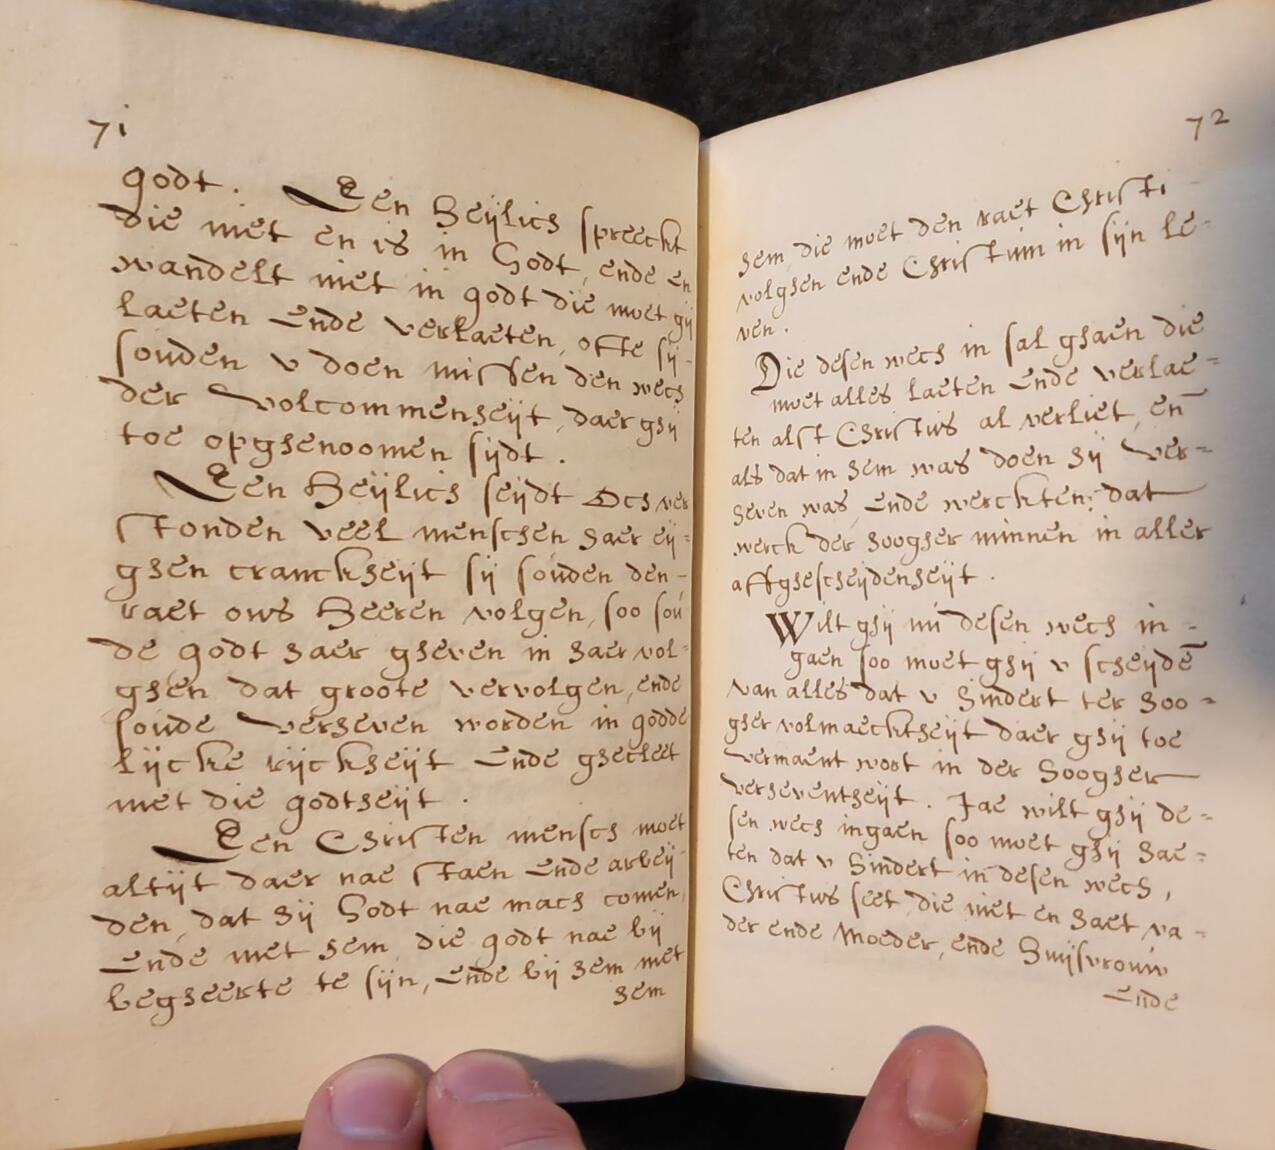 71
godt. Een Heÿlich spreeckt
die niet en is in Godt, ende en
wandelt niet in godt die moet gij
laeten Ende verlaeten, ofte sij
souden v doen missen den wech
der volcommenheijt, daer ghij
toe opghenoomen sijdt.
Een Heÿlich seijdt Och ver
stonden veel menschen haer eij=
ghen cranckheijt sij souden den
raet ons Heeren volgen, soo sou
de godt haer gheven in haer vol=
ghen dat groote vervolgen, ende
soude verheven worden in godde
lijcke rijckheijt Ende ghecleet
met die godtheijt.
Een Christen mensch moet
altijt daer nae staen Ende arbeij
den, dat hij Godt nae mach comen,
Ende met hem, die godt nae bij
begheerte te sijn, Ende bij hem met
hem
72
hem, die moet den raet Christi
volghen ende Christum in sijn le=
ven.
Die desen wech in sal ghaen die
moet alles laeten Ende verlae=
ten alst Christus al verliet, eñ
als dat in hem was doen hij ver=
heven was, Ende werckten: dat
werck der hoogher minnen in aller
affghescheijdenheijt.
Wilt ghij nu desen wech in=
gaen soo moet ghij v scheijdē
van alles dat v hindert ter hoo=
gher volmaecktheijt daer ghij toe
vermaent wort in der hoogher
verheventheijt. Jae wilt ghij de=
sen wech ingaen soo moet ghij hae=
ten dat v hindert in desen wech,
Christus seet, die niet en haet va=
der ende Moeder, ende Huijsvrouw
Ende